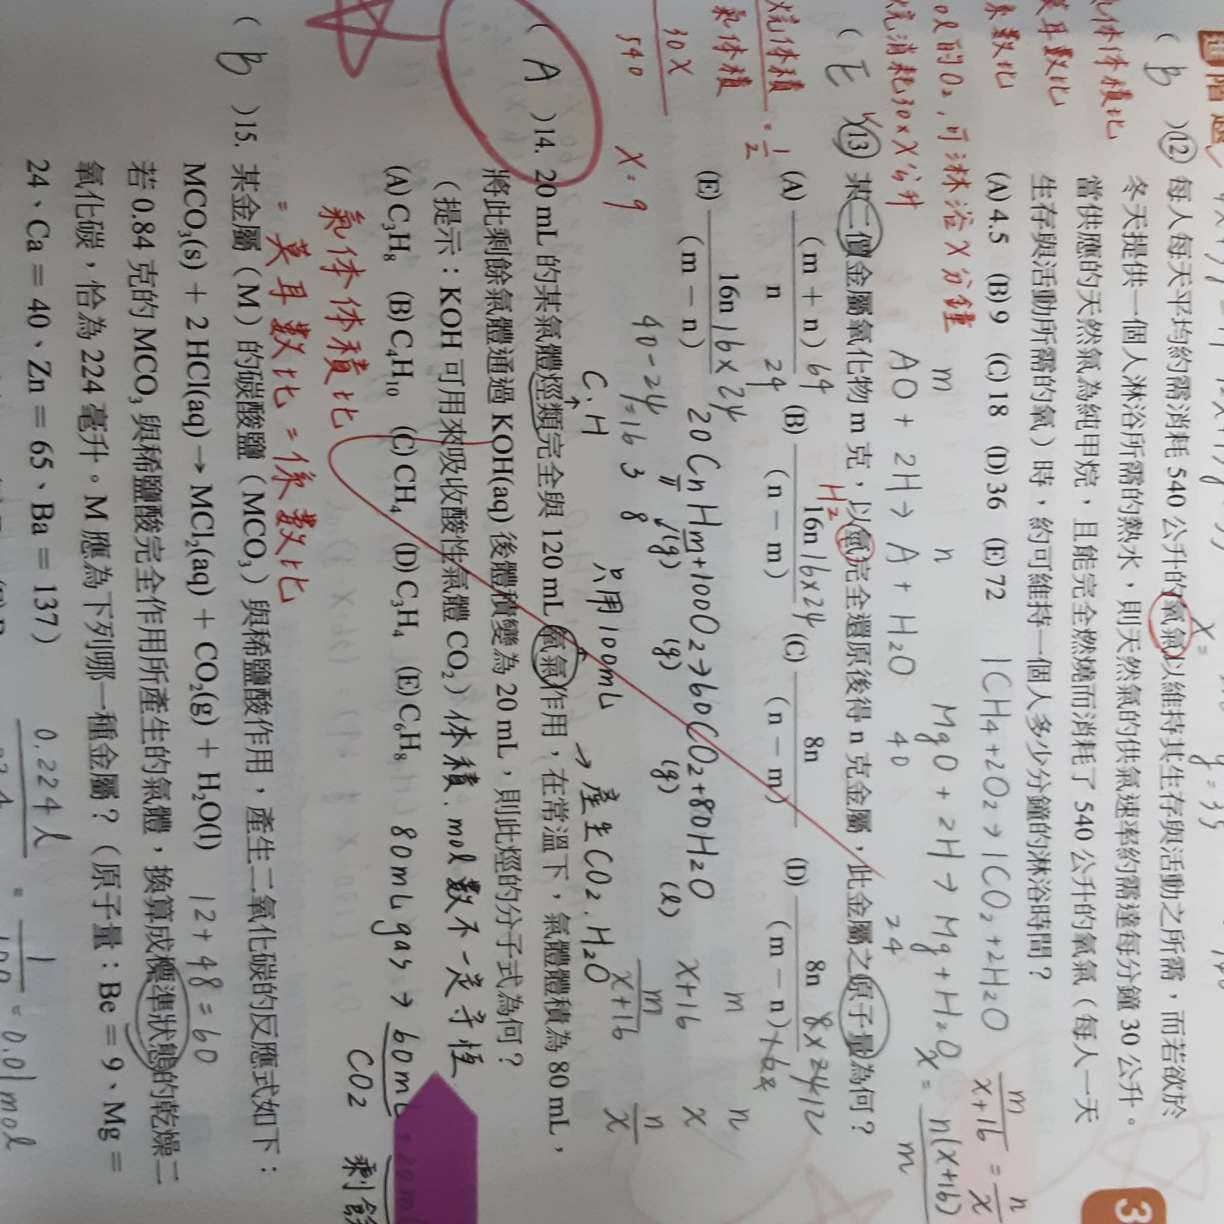 進階題
( B )12. 每人每天平均約需消耗 540 公升的氧氣以維持其生存與活動之所需，而若欲於
冬天提供一個人淋浴所需的熱水，則天然氣的供氣速率約需達每分鐘 30 公升。
當供應的天然氣為純甲烷，且能完全燃燒而消耗了 540 公升的氧氣（每人一天
生存與活動所需的氧）時，約可維持一個人多少分鐘的淋浴時間？
(A) 4.5 (B) 9 (C) 18 (D) 36 (E) 72
1CH4+2O2→1CO2+2H2O
體體積比
耳數比
係數比
的O2,可淋浴X分鐘
燒消耗30×X公升
m/(x+16) = n/x
x = n(x+16)/m
m n
AO + 2H → A + H2O
MgO + 2H → Mg + H2O
40 24
( E )13. 某二價金屬氧化物 m 克，以氫完全還原後得 n 克金屬，此金屬之原子量為何？
H2
(A) (m + n)/n 64/24 (B) 16n/(n − m) 16×24 (C) 8n/(n − m) (D) 8n/(m − n) 8×24 12/16
(E) 16n/(m − n) 16×24
40-24=16
氣體體積 = 1/2
30X
540
X = 9
20CnHm+100O2→60CO2+80H2O
(g) (g) (g) (l)
3 8
m n
x+16 x
m/(x+16) n/x
C.H
只用100mL
→產生CO2.H2O
( A )14. 20 mL 的某氣體烴類完全與 120 mL 氧氣作用，在常溫下，氣體體積為 80 mL，
將此剩餘氣體通過 KOH(aq) 後體積變為 20 mL，則此烴的分子式為何？
（提示：KOH 可用來吸收酸性氣體 CO2）體積.mol數不一定守恆
(A) C3H8 (B) C4H10 (C) CH4 (D) C3H4 (E) C6H8
80mL gas → 60mL
CO2 剩餘
氣體體積比
=莫耳數比=係數比
( B )15. 某金屬（M）的碳酸鹽（MCO3）與稀鹽酸作用，產生二氧化碳的反應式如下：
MCO3(s) + 2 HCl(aq) → MCl2(aq) + CO2(g) + H2O(l)
12+48=60
若 0.84 克的 MCO3 與稀鹽酸完全作用所產生的氣體，換算成標準狀態的乾燥二
氧化碳，恰為 224 毫升。M 應為下列哪一種金屬？（原子量：Be = 9、Mg =
24、Ca = 40、Zn = 65、Ba = 137）
0.224 l
= 1/100 = 0.01 mol
3